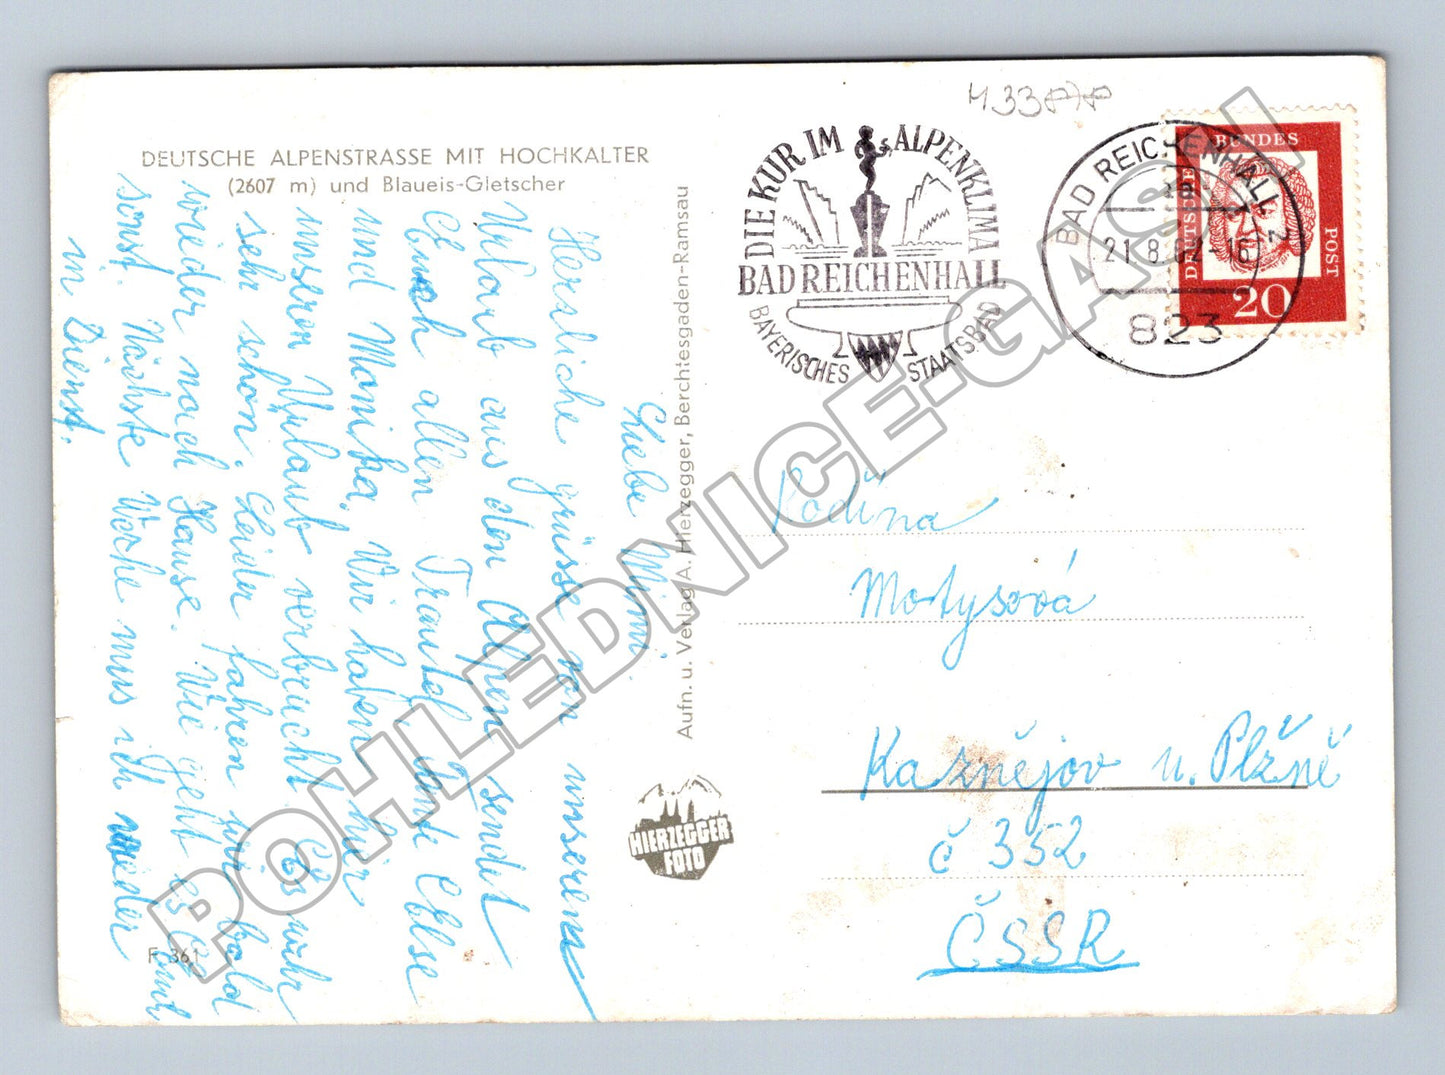 DEUTSCHE ALPENSTRASSE MIT HOCHKALTER
(2607 m) und Blaueis-Gletscher
Liebe Mimi.
Herzliche grüsse von unserem
Urlaub aus den Alpen sendet
Euch allen Trautel Tante Else
und Monika. Wir haben hier
unseren Urlaub verbracht. Es wahr
sehr schön. Leider fahren wir bald
wieder nach Hause. Wie geht es
sonst. Nächste Woche mus ich wieder
in Dienst.
F 361
Aufn. u. Verlag A. Hierzegger, Berchtesgaden-Ramsau
HIERZEGGER
FOTO
433
DIE KUR IM ALPENKLIMA
BAD REICHENHALL
BAYERISCHES STAATSBAD
BAD REICHENHALL 2
21.8.62-16
823
BUNDES
DEUTSCHE
POST
20
Rodina
Motysová
Kaznějov u. Plžně
č 352
ČSSR
POHLEDNICE-GASH